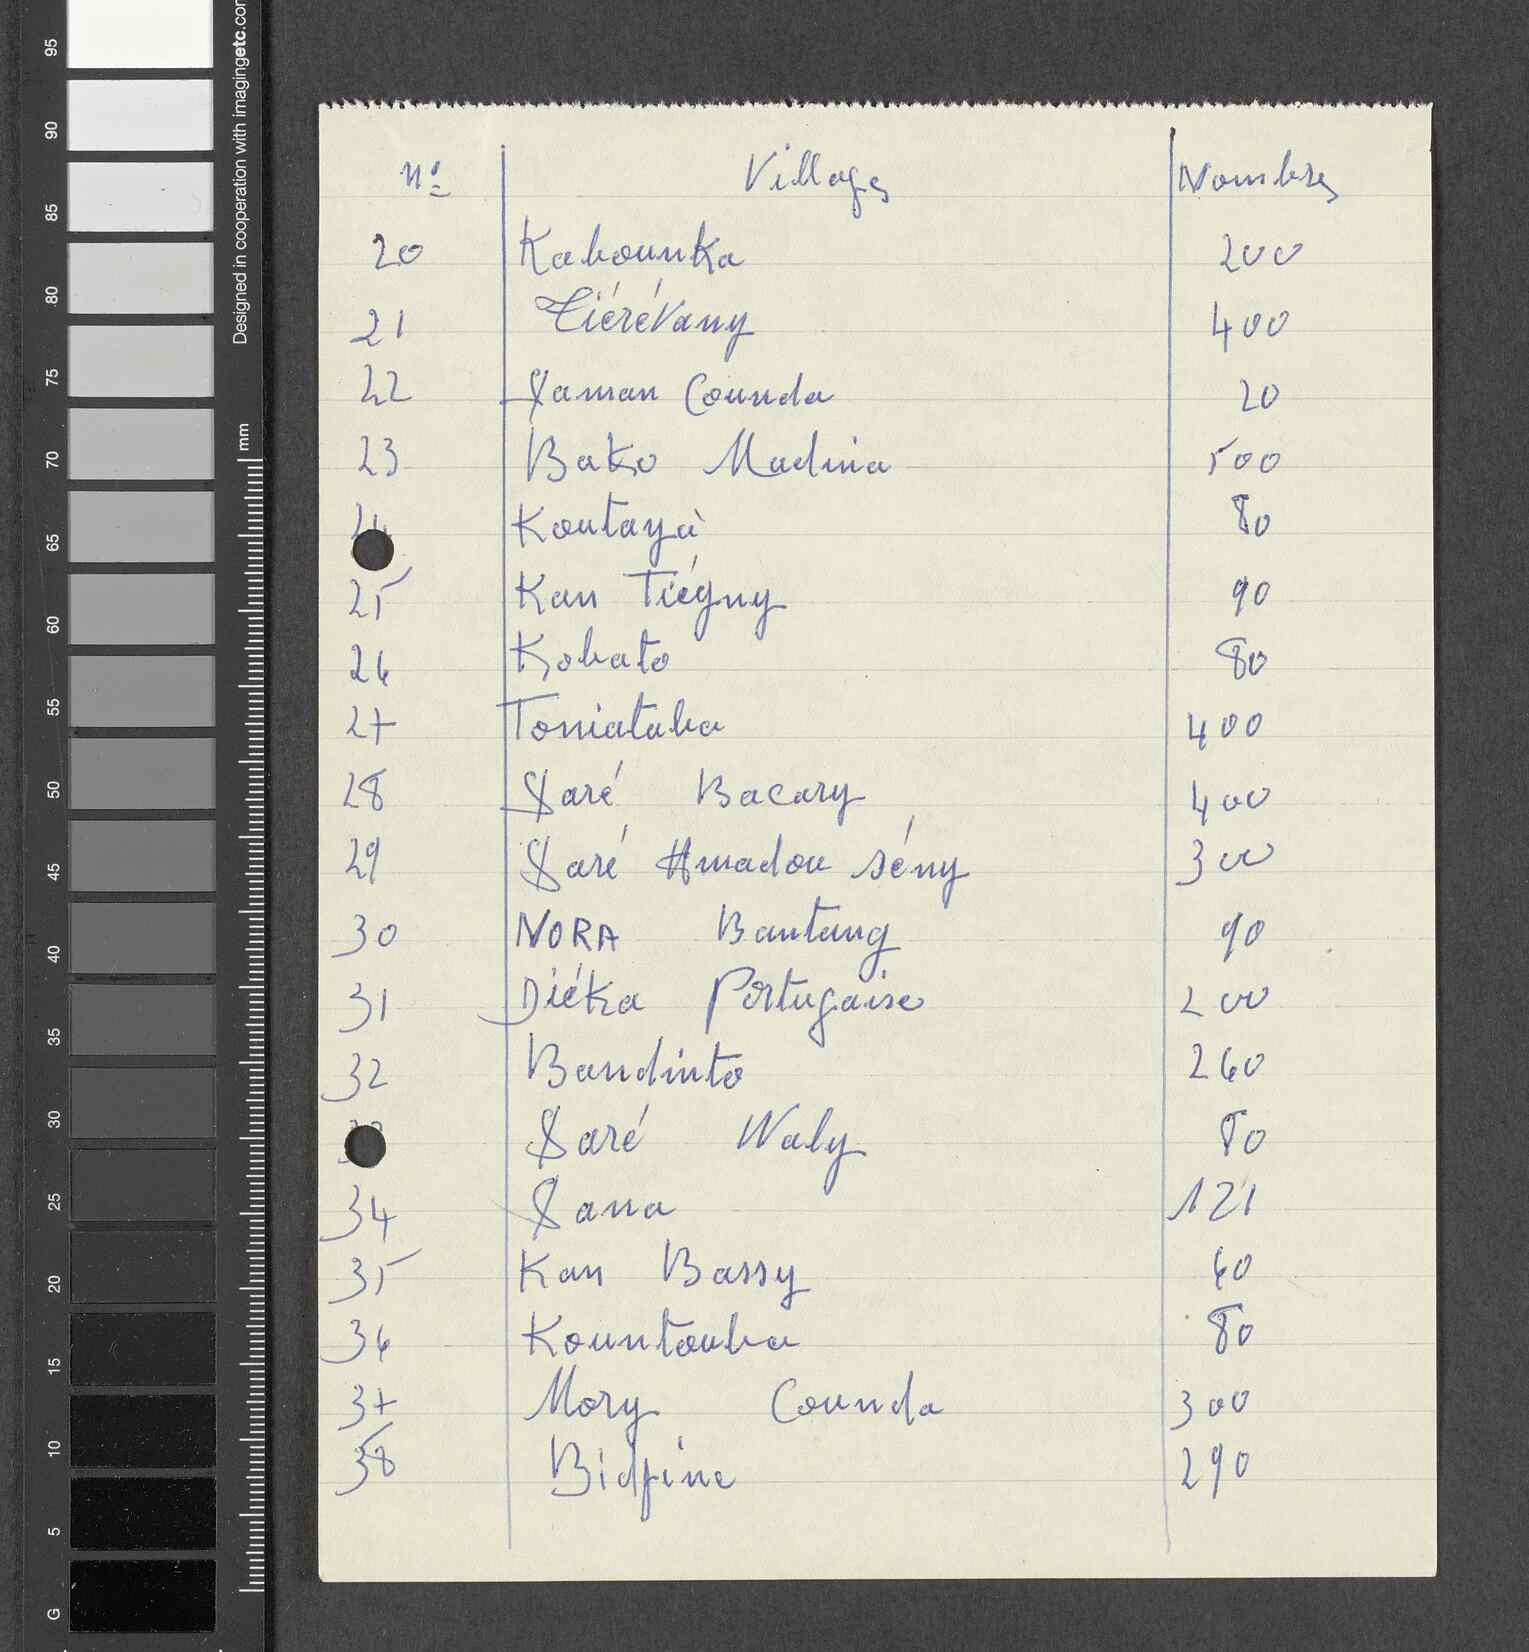 nº Villages Nombres
20 Kabounka 200
21 Tiérévany 400
22 Saman Counda 20
23 Bako Madina 500
24 Koutayà 80
25 Kan Tiégny 90
26 Kobato 80
27 Toniataba 400
28 Saré Bacary 400
29 Saré Amadou sény 300
30 NORA Bantang 90
31 Diéka Portugaise 200
32 Bandinto 260
Saré Waly 80
34 Sana 121
35 Kan Bassy 60
36 Kountouba 80
37 Mory Counda 300
38 290
Designed in cooperation with imagingetc.com
mm
95
90
85
80
75
70
65
60
55
50
45
40
35
30
25
20
15
10
5
G